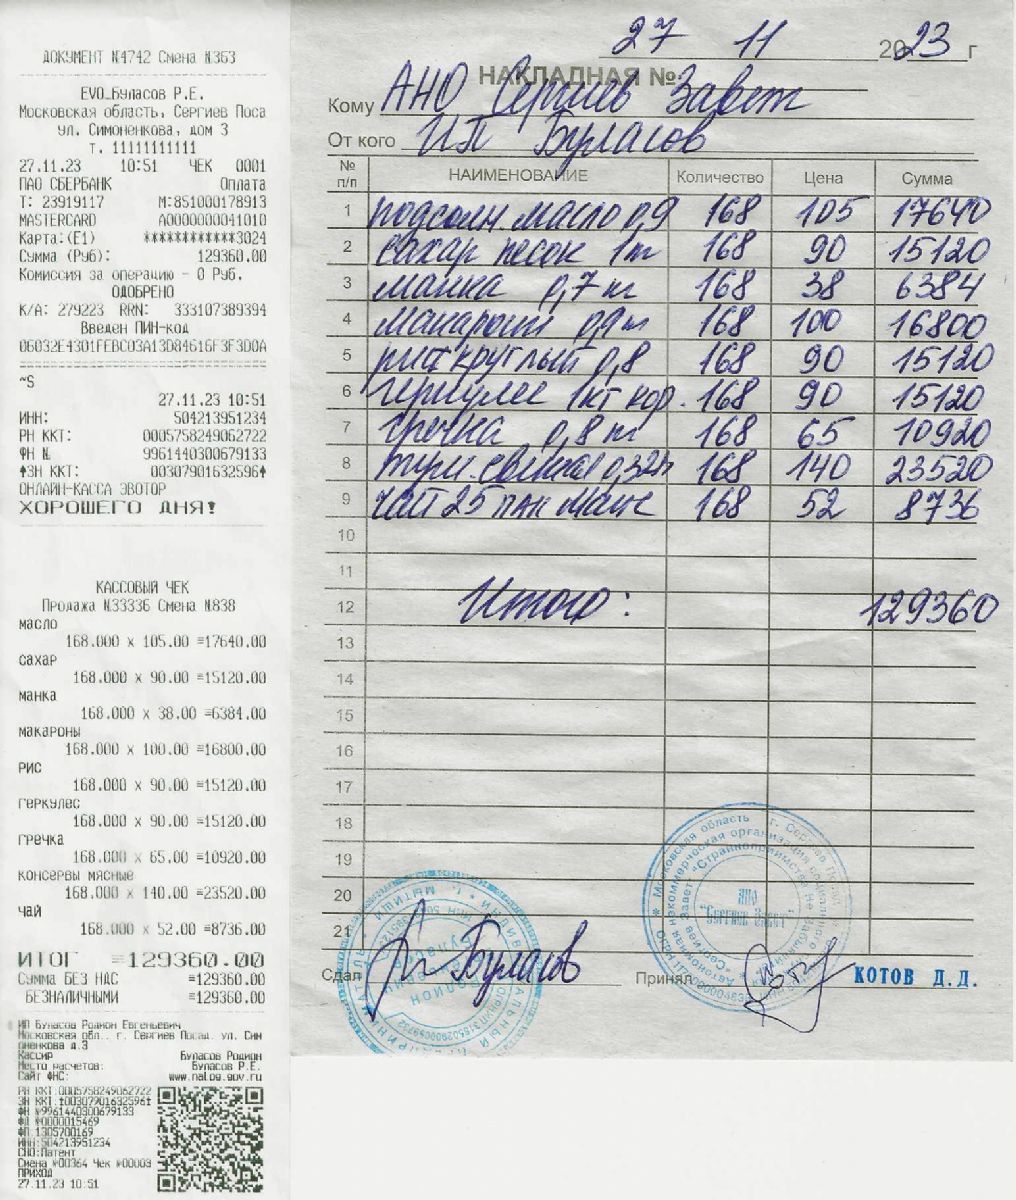 ДОКУМЕНТ №4742 Смена №363
EVO_Буласов Р.Е.
Московская область, Сергиев Поса
ул. Симоненкова, дом 3
т. 11111111111
27.11.23 10:51 ЧЕК 0001
ПАО СБЕРБАНК Оплата
Т: 23919117 М:851000178913
MASTERCARD A0000000041010
Карта:(E1) ************3024
Сумма (Руб): 129360.00
Комиссия за операцию - 0 Руб.
ОДОБРЕНО
К/А: 279223 RRN: 333107389394
Введен ПИН-код
06032E4301FEBC03A13D84616F3F3D0A
~S
27.11.23 10:51
ИНН: 504213951234
РН ККТ: 0005758249062722
ФН № 9961440300679133
↑ЗН ККТ: 00307901632596↑
ОНЛАЙН-КАССА ЭВОТОР
ХОРОШЕГО ДНЯ!
КАССОВЫЙ ЧЕК
Продажа №33336 Смена №838
масло
168.000 x 105.00 =17640.00
сахар
168.000 x 90.00 =15120.00
манка
168.000 x 38.00 =6384.00
макароны
168.000 x 100.00 =16800.00
рис
168.000 x 90.00 =15120.00
геркулес
168.000 x 90.00 =15120.00
гречка
168.000 x 65.00 =10920.00
консервы мясные
168.000 x 140.00 =23520.00
чай
168.000 x 52.00 =8736.00
ИТОГ =129360.00
Сумма БЕЗ НДС =129360.00
БЕЗНАЛИЧНЫМИ =129360.00
ИП Буласов Родион Евгеньевич
Московская обл., г. Сергиев Посад, ул. Сим
оненкова д.3
Кассир Буласов Родион
Место расчетов: Буласов Р.Е.
Сайт ФНС: www.nalog.gov.ru
РН ККТ:0005758249062722
ЗН ККТ:↑00307901632596↑
ФН №9961440300679133
ФД №0000015469
ФП:1305700169
ИНН:504213951234
СНО:Патент
Смена №00364 Чек №00003
ПРИХОД
27.11.23 10:51
27 11 2023 г
НАКЛАДНАЯ №
Кому АНО Сергиев Завет
От кого ИП Буласов
№ п/п НАИМЕНОВАНИЕ Количество Цена Сумма
1 подсолн. масло 0,9 168 105 17640
2 сахар песок 1кг 168 90 15120
3 манка 0,7 кг 168 38 6384
4 макароны 0,9 кг 168 100 16800
5 рис круглый 0,8 168 90 15120
6 геркулес 1кг кор. 168 90 15120
7 гречка 0,8 кг 168 65 10920
8 туш. свиная 0,325 168 140 23520
9 чай 25 пак 168 52 8736
10
11
12 Итого: 129360
13
14
15
16
17
18
19
20
21
Сдал Буласов Принял КОТОВ Д.Д.
АНО
"Сергиев Завет"